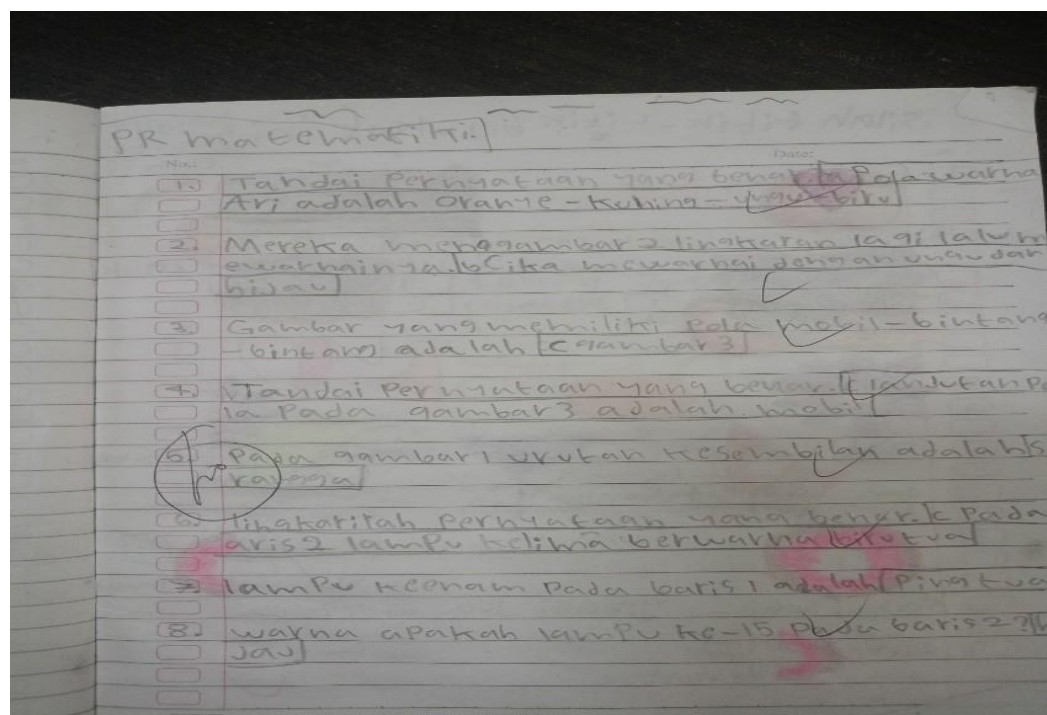 PR matematiki.
No.: Date:
1. Tandai Pernyataan yang benar [a Pola warna
Ari adalah oranye - Kuning - ungu - biru]
2. Mereka menggambar 2 lingkaran lagi lalu m
ewarnainya. [b Cika mewarnai dengan ungu dan
hijau]
3. Gambar yang memiliki Pola mobil - bintang
- bintang adalah [c gambar 3]
4. Tandai Pernyataan yang benar. [c lanjutan Po
la Pada gambar 3 adalah mobil]
5. Pada gambar 1 urutan kesembilan adalah [s
ragga]
6. lingkarilah Pernyataan yang benar. [c Pada
aris 2 lampu kelima berwarna biru tua]
7. lampu keenam Pada baris 1 adalah [Pink tua
8. warna apakah lampu ke-15 Pada baris 2? [h
ijau]